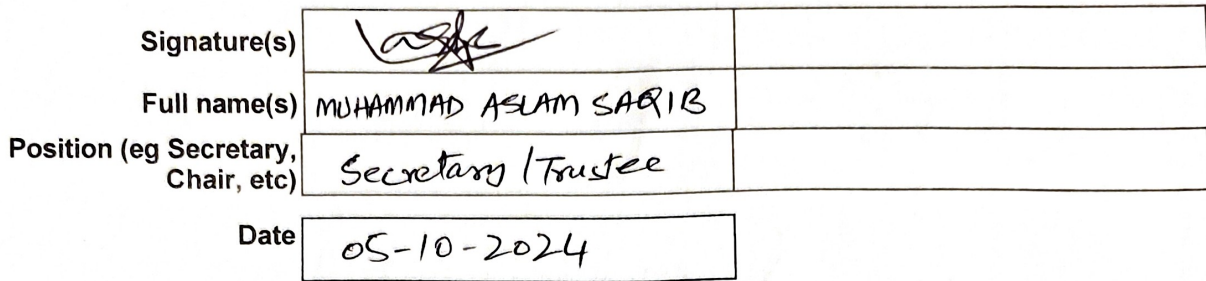 Signature(s)
Full name(s) MUHAMMAD ASLAM SAQIB
Position (eg Secretary,
Chair, etc) Secretary / Trustee
Date 05-10-2024